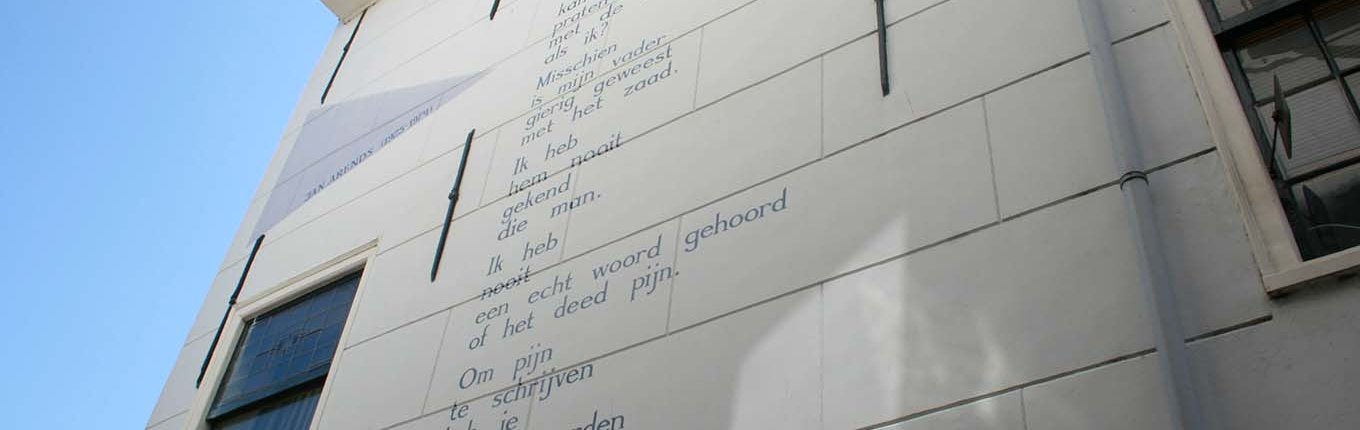 praten
met de
als ik?
Misschien
is mijn vader
gierig geweest
met het zaad.
Ik heb
hem nooit
gekend
die man.
Ik heb
nooit
een echt woord gehoord
of het deed pijn.
Om pijn
te schrijven
je
JAN ARENDS (1925-1974)